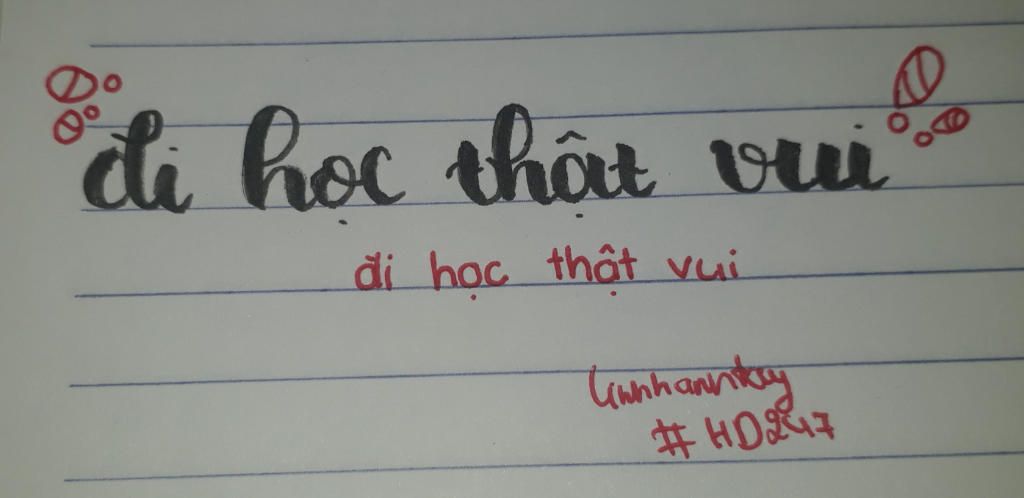 đi học thật vui
đi học thật vui
#HD247